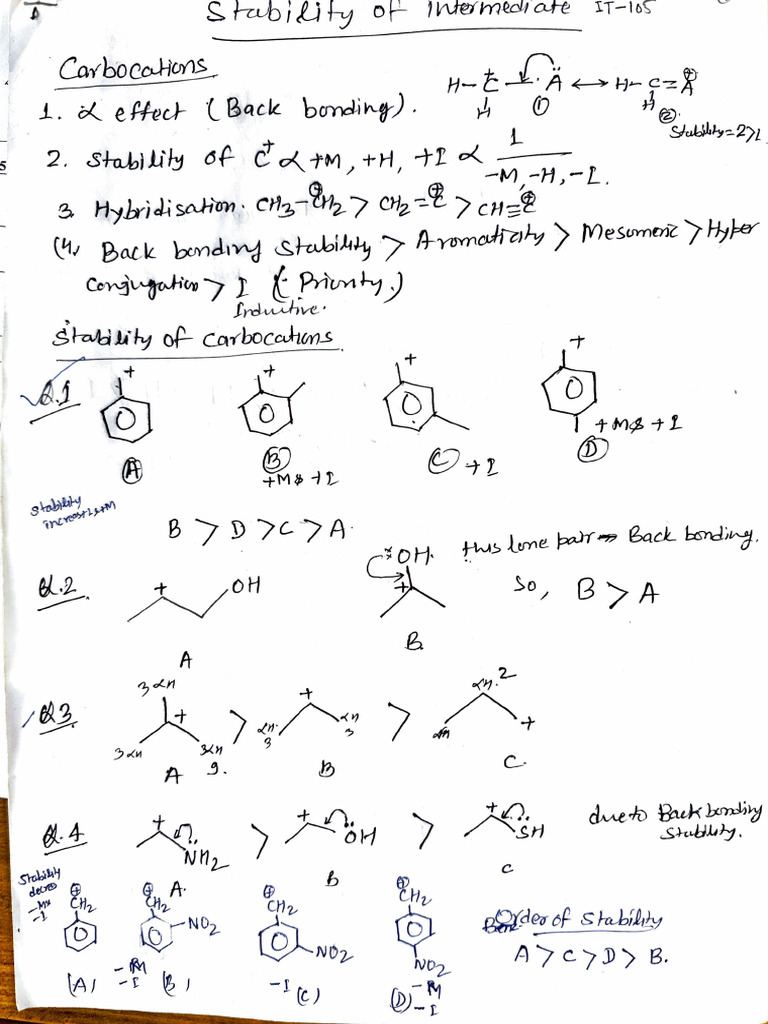 Stability of Intermediate IT-105
Carbocations
1. α effect (Back bonding).
H-C+-Ä ↔ H-C=Ä⊕
H H
① ②
Stability = 2>1
2. Stability of C+ α +M, +H, +I α 1/-M, -H, -I.
3. Hybridisation. CH3-C⊕H2 > CH2=C⊕ > CH≡C⊕
(4, Back bonding Stability > Aromaticity > Mesomeric > Hyper
Conjugation > I (- Priority.)
Inductive.
Stability of carbocations.
Q.1
+ + + +
A B C D
+M & +I +I +M & +I
Stability
increas +I, +M
B > D > C > A.
Q.2
+ OH
A
OH.
+
B.
this lone pair → Back bonding.
So, B > A
Q3
3αH + 3αH 3αH > + αH 3 αH 3 > αH 2 αH +
A 9. B C.
Q.4
+ NH2 > + OH > + SH
A. B C
due to Back bonding
Stability.
Stability
-I
⊕ ⊕ ⊕ ⊕
CH2 CH2 CH2 CH2
NO2 NO2 NO2
(A) (B) (C) (D)
-M -I -I -M -I
Order of Stability
A > C > D > B.